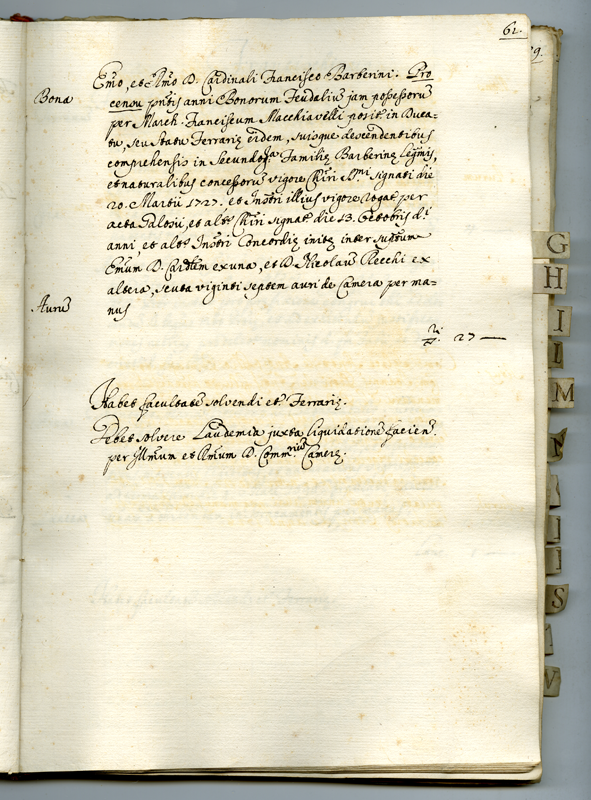 61.
Emo, et Rmo D. Cardinali Francisco Barberini. Pro
Bona
censu pntis anni Bonorum Feudaliu jam possessoru
per March Franciscum Macchiavelli posit in Duca-
tu, seu Statu Ferrariæ eidem, suisque descendentibus
comprehensis in Secundogra Familiæ Barberinæ legmis,
et naturalibus concessoru vigore Chiri Smi signati die
20. Martii 1727. et Instri illius vigore rogat per
acta Palosii, et alts Chiri signat die 13. Octobris di
anni et alts Instri Concordiæ initæ inter suptum
Emum D. Cardlem ex una, et D. Nicolau Recchi ex
altera, scuta viginti septem auri de Camera per ma-
Auru
nus
27
Habet facultate solvendi et Ferrariæ.
Debet solvere Laudemia juxta liquidatione facien.
per Illmum et Rmum D. Commrium Cameræ.
G
H
I
L
M
N
S
V